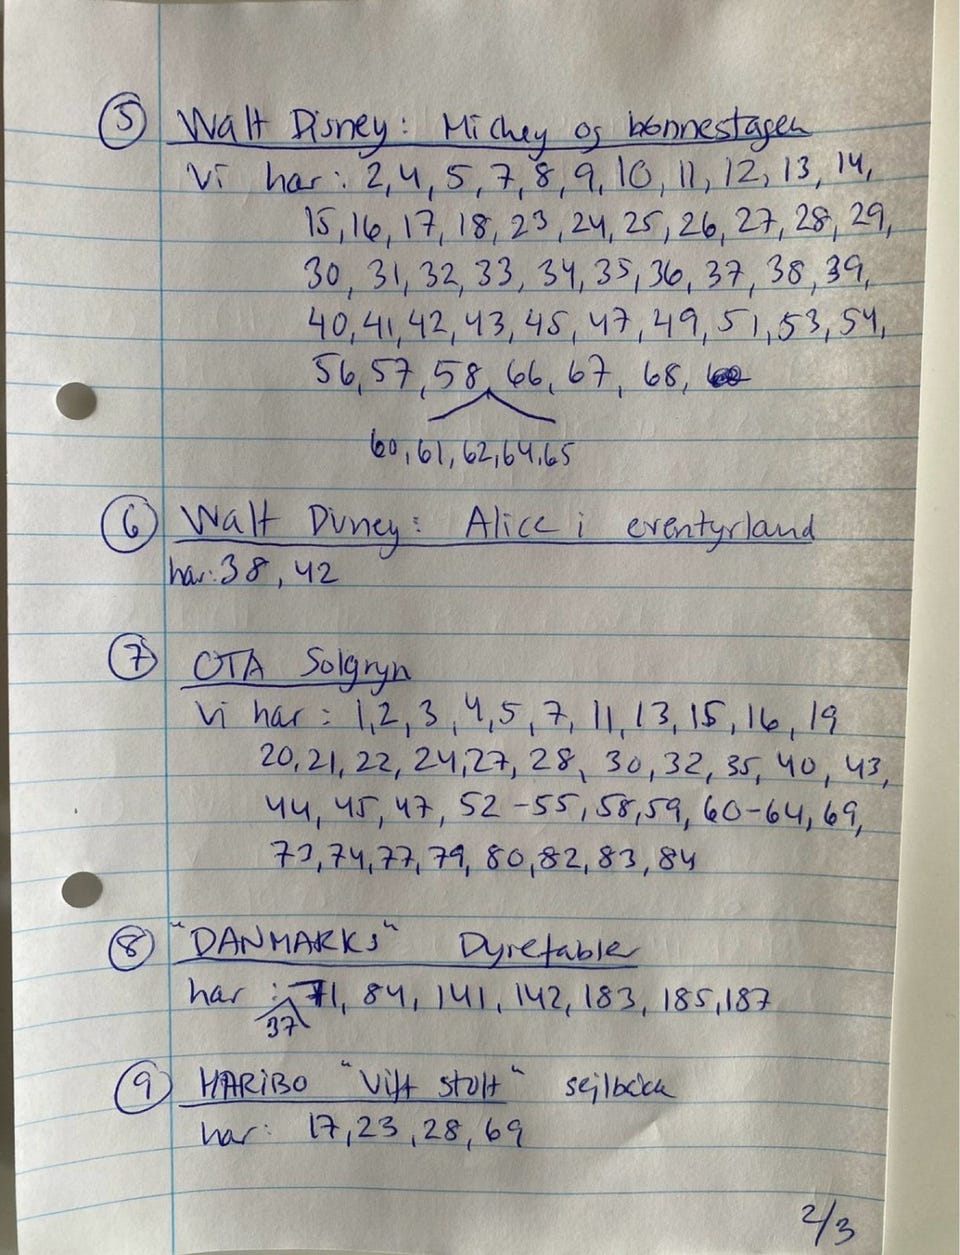 5 Walt Disney: Mickey og bønnestagen
Vi har: 2, 4, 5, 7, 8, 9, 10, 11, 12, 13, 14,
15, 16, 17, 18, 23, 24, 25, 26, 27, 28, 29,
30, 31, 32, 33, 34, 35, 36, 37, 38, 39,
40, 41, 42, 43, 45, 47, 49, 51, 53, 54,
56, 57, 58, 66, 67, 68,
60, 61, 62, 64, 65
6 Walt Disney: Alice i eventyrland
har: 38, 42
7 OTA Solgryn
Vi har: 1, 2, 3, 4, 5, 7, 11, 13, 15, 16, 19
20, 21, 22, 24, 27, 28, 30, 32, 35, 40, 43,
44, 45, 47, 52-55, 58, 59, 60-64, 69,
73, 74, 77, 79, 80, 82, 83, 84
8 "DANMARKS" Dyrefabler
har: 71, 84, 141, 142, 183, 185, 187
37
9 HARIBO "Vift stolt"
har: 17, 23, 28, 69
2/3